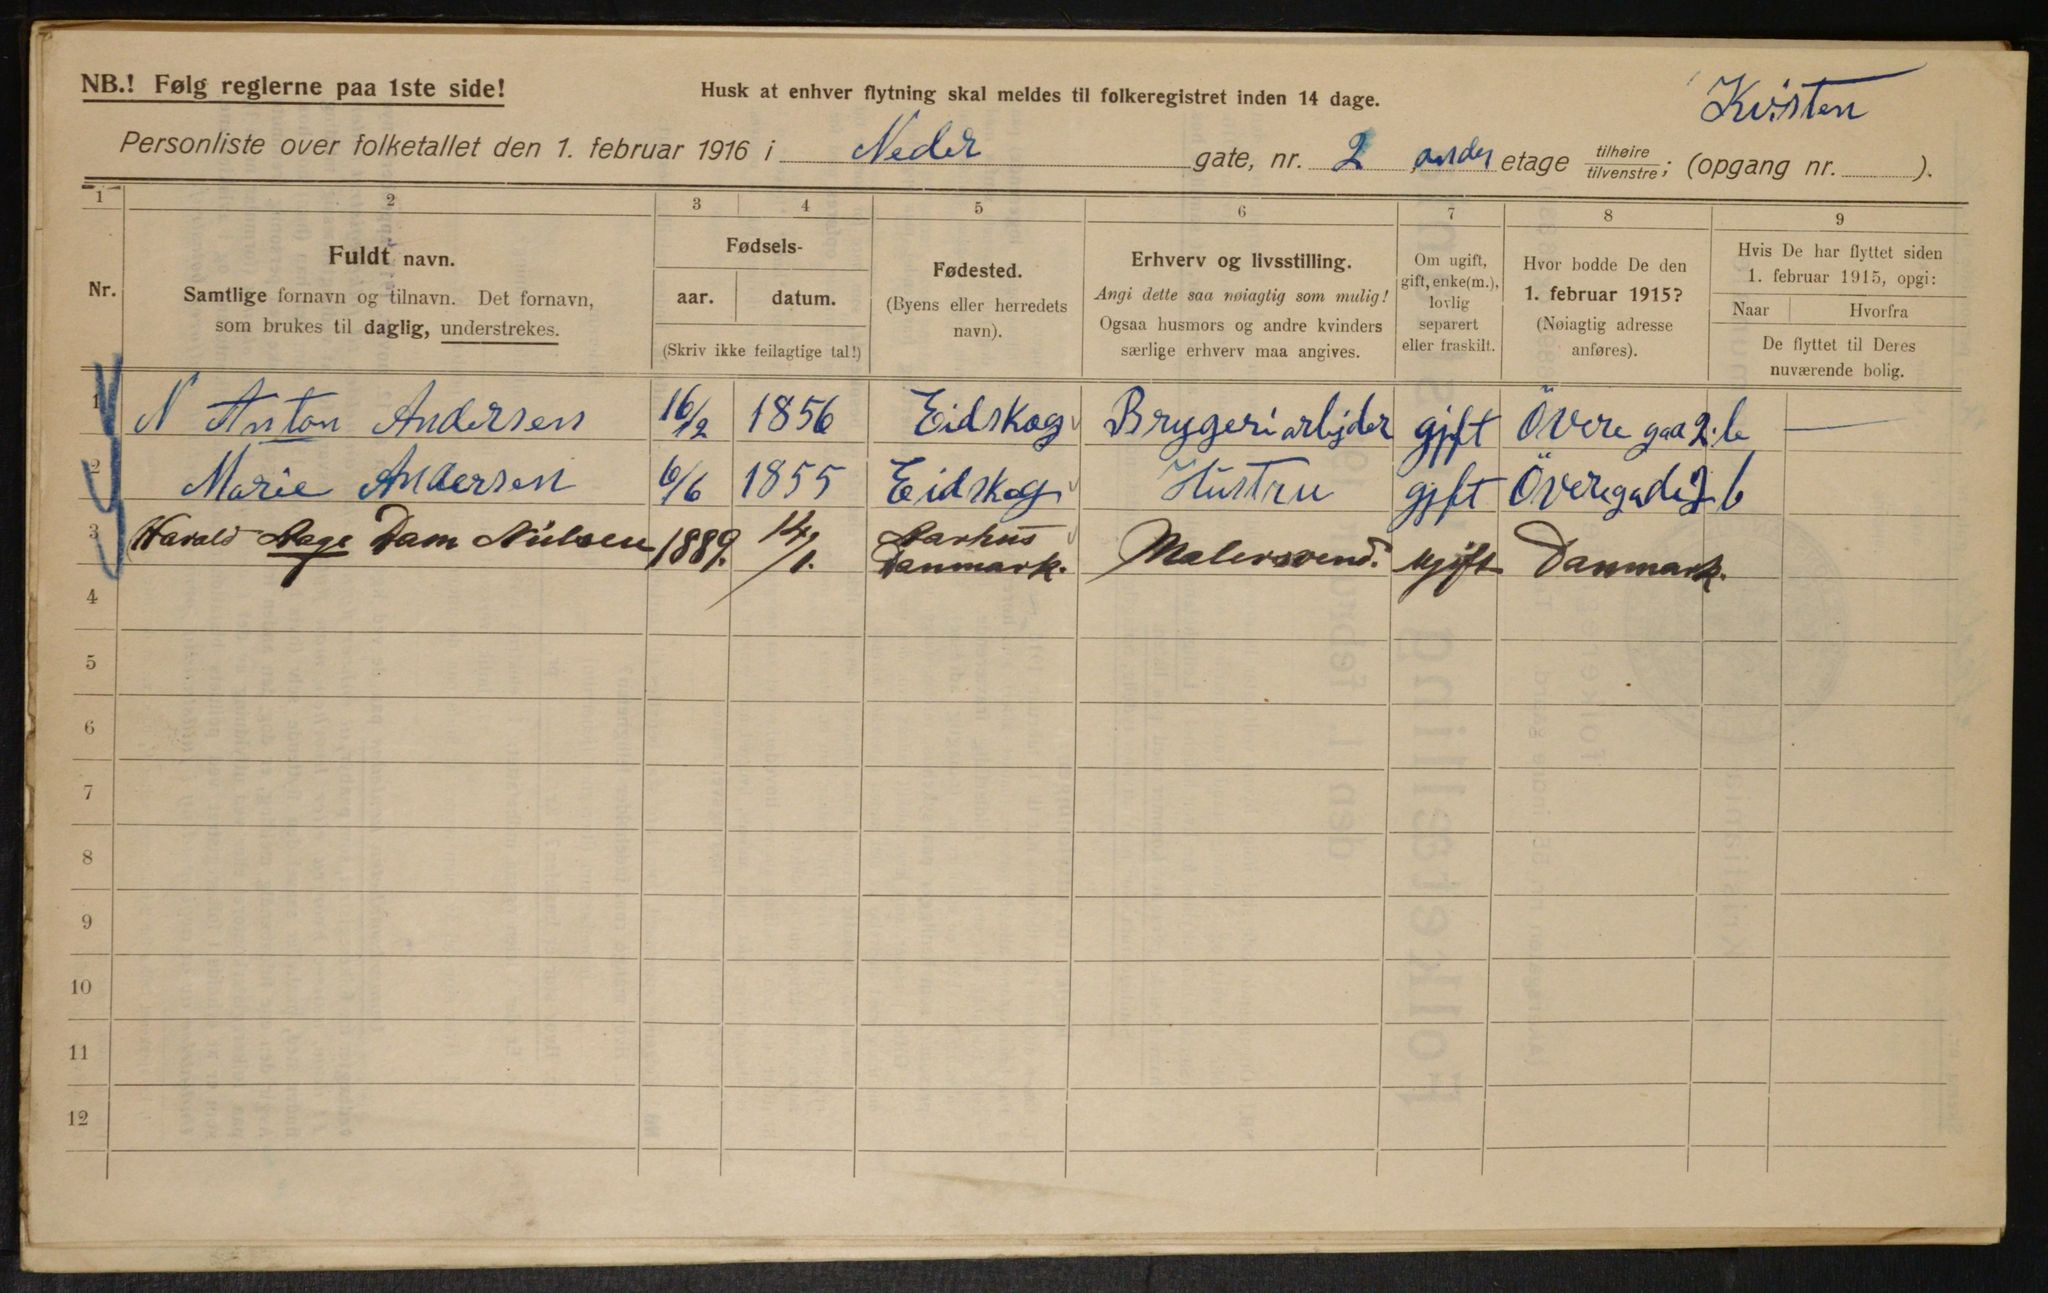 NB.! Følg reglerne paa 1ste side!
Husk at enhver flytning skal meldes til folkeregistret inden 14 dage.
Kvisten
Personliste over folketallet den 1. februar 1916 i Neder gate, nr. 2 anden etage tilhøire / tilvenstre; (opgang nr. ).
1 2 3 4 5 6 7 8 9
Nr.
Fuldt navn.
Samtlige fornavn og tilnavn. Det fornavn,
som brukes til daglig, understrekes.
Fødsels-
aar. datum.
(Skriv ikke feilagtige tal!)
Fødested.
(Byens eller herredets
navn).
Erhverv og livsstilling.
Angi dette saa nøiagtig som mulig!
Ogsaa husmors og andre kvinders
særlige erhverv maa angives.
Om ugift,
gift, enke(m.),
lovlig
separert
eller fraskilt.
Hvor bodde De den
1. februar 1915?
(Nøiagtig adresse
anføres).
Hvis De har flyttet siden
1. februar 1915, opgi:
Naar Hvorfra
De flyttet til Deres
nuværende bolig.
1 N Anton Andersen 16/2 1856 Eidskog Bryggeriarbejder gift Övere gaa 2. b
2 Marie Andersen 6/6 1855 Eidskog Hustru gjft Överegade 2 b
3 Harald Aage Dam Nielsen 1889. 14/1. Aarhus Danmark. Malersvend. ugift Danmark.
4
5
6
7
8
9
10
11
12